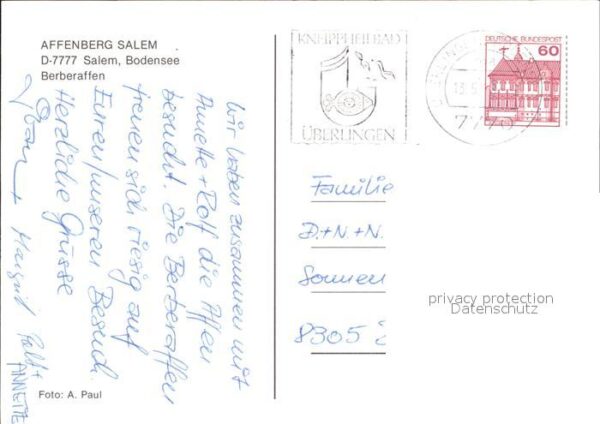 AFFENBERG SALEM
D-7777 Salem, Bodensee
Berberaffen
Wir haben zusammen mit
Annette + Rolf die Affen
besucht. Die Berberaffen
freuen sich riesig auf
Euren/unseren Besuch.
Herzliche Grüsse
Margrit Rolf +
ANNETTE
Foto: A. Paul
KNEIPPHEILBAD
ÜBERLINGEN
7770
DEUTSCHE BUNDESPOST
60
Familie
D.+N.+N.
Sonnen
8305
privacy protection
Datenschutz